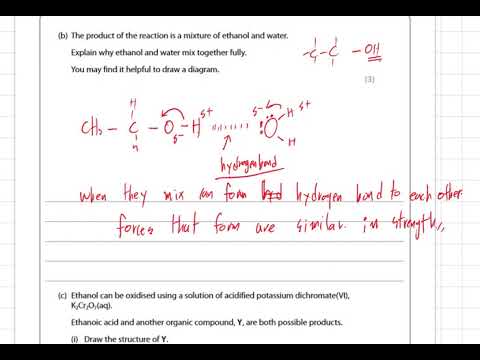 (b) The product of the reaction is a mixture of ethanol and water.
Explain why ethanol and water mix together fully.
You may find it helpful to draw a diagram.
-C-C-OH
(3)
H
CH₃ - C - O - H
H
δ- δ+
δ- O H δ+
H
hydrogen bond
When they mix can form hydrogen bond to each other.
forces that form are similar in strength,
(c) Ethanol can be oxidised using a solution of acidified potassium dichromate(VI),
K₂Cr₂O₇(aq).
Ethanoic acid and another organic compound, Y, are both possible products.
(i) Draw the structure of Y.